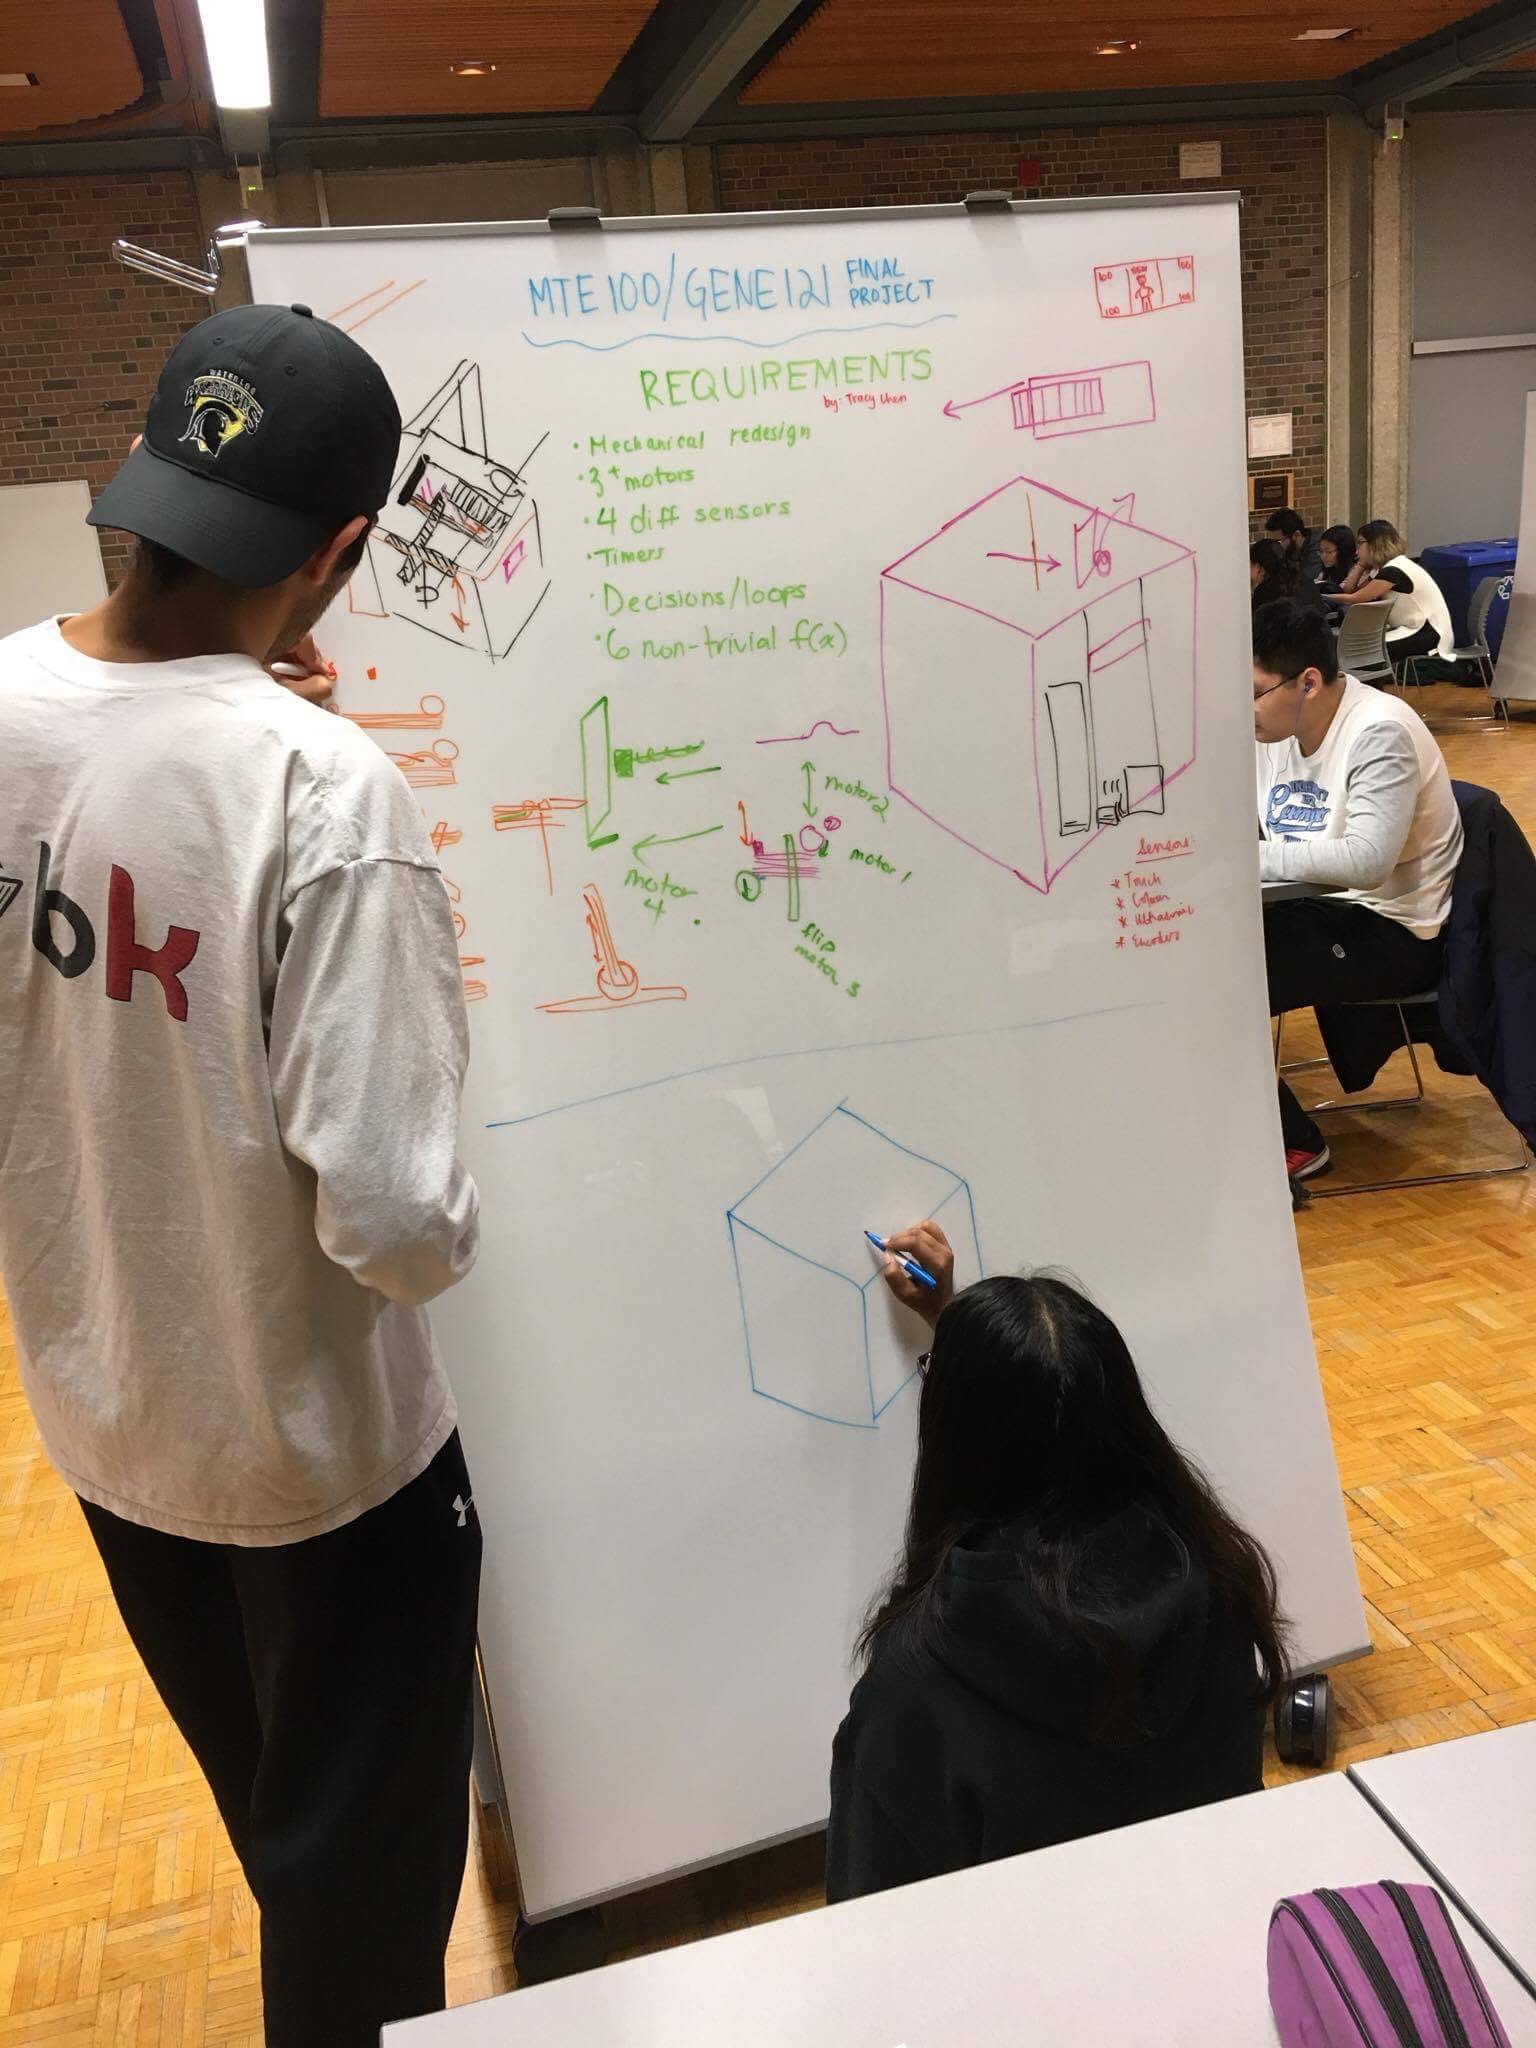 MTE 100/GENE 121 FINAL PROJECT
100 100
100 100
REQUIREMENTS
by: Tracy Chen
• Mechanical redesign
• 3+ motors
• 4 diff sensors
• Timers
• Decisions/loops
• 6 non-trivial f(x)
motor 2
motor 1
motor 4
flip motor 3
1
2
Sensors:
* Touch
* Colour
* Ultrasonic
* Encoders
WATERLOO
WARRIORS
bk